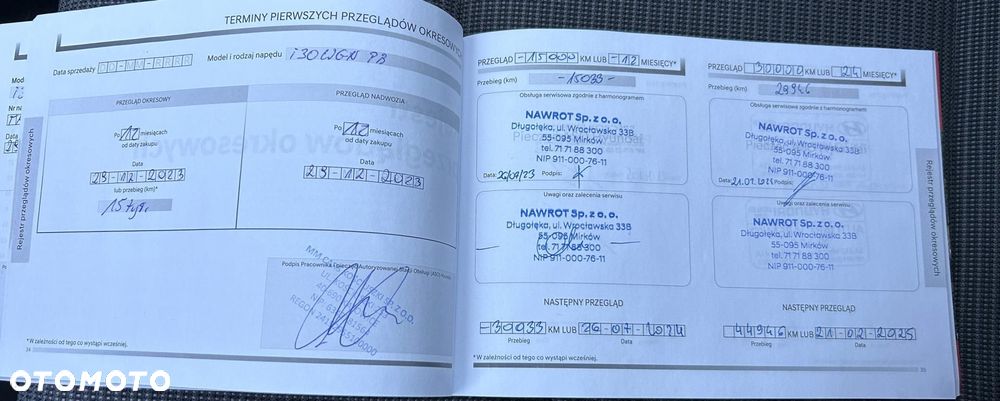 TERMINY PIERWSZYCH PRZEGLĄDÓW OKRESOWYCH
Data sprzedaży DD-MM-RRRR
Model i rodzaj napędu i30WGN PB
PRZEGLĄD OKRESOWY
Po 12 miesiącach
od daty zakupu
Data
29-12-2023
lub przebieg (km)*
15 tyś.
PRZEGLĄD NADWOZIA
Po 12 miesiącach
od daty zakupu
Data
29-12-2023
Podpis Pracownika i pieczęć Autoryzowanej Stacji Obsługi (ASO)
REGON
*W zależności od tego co wystąpi wcześniej.
34
Rejestr przeglądów okresowych
PRZEGLĄD -15000 KM LUB -12 MIESIĘCY*
Przebieg (km) -15033-
Obsługa serwisowa zgodnie z harmonogramem
NAWROT Sp. z o. o.
Długołęka, ul. Wrocławska 33B
55-095 Mirków
tel. 71 71 88 300
NIP 911-000-76-11
Data: 26/07/23 Podpis:
Uwagi oraz zalecenia serwisu
NAWROT Sp. z o. o.
Długołęka, ul. Wrocławska 33B
55-095 Mirków
tel. 71 71 88 300
NIP 911-000-76-11
NASTĘPNY PRZEGLĄD
-30033 KM LUB 26-07-2024
Przebieg Data
*W zależności od tego co wystąpi wcześniej.
PRZEGLĄD 30000 KM LUB 24 MIESIĘCY*
Przebieg (km) 29946
Obsługa serwisowa zgodnie z harmonogramem
NAWROT Sp. z o. o.
Długołęka, ul. Wrocławska 33B
55-095 Mirków
tel. 71 71 88 300
NIP 911-000-76-11
Data: 21.02.2024 Podpis:
Uwagi oraz zalecenia serwisu
NAWROT Sp. z o. o.
Długołęka, ul. Wrocławska 33B
55-095 Mirków
tel. 71 71 88 300
NIP 911-000-76-11
NASTĘPNY PRZEGLĄD
44946 KM LUB 21-02-2025
Przebieg Data
35
Rejestr przeglądów okresowych
OTOMOTO